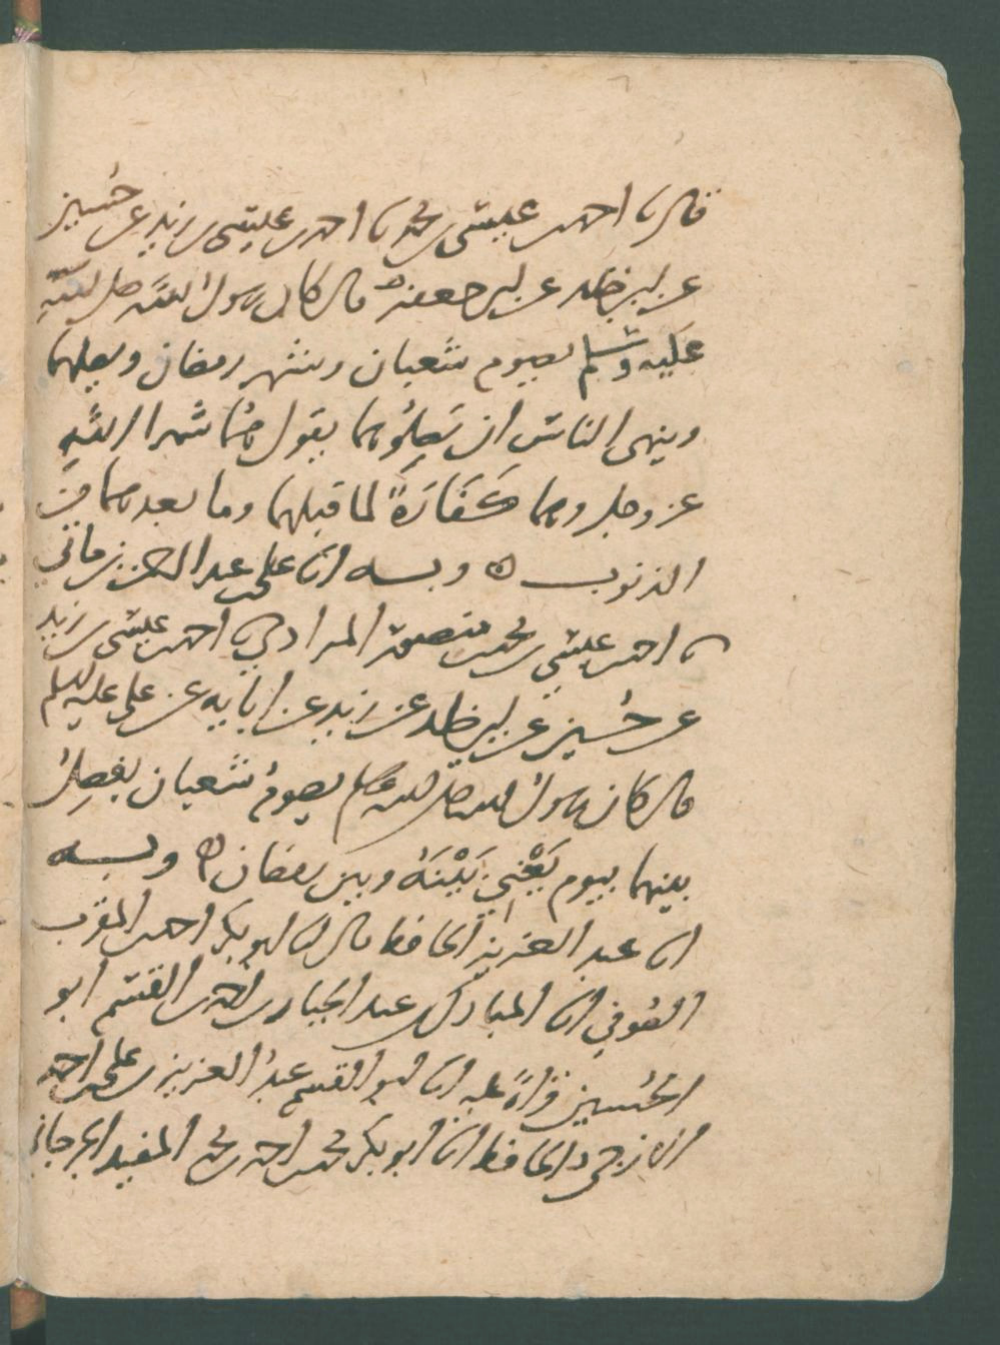 قال نا احمد بن عيسى نا محمد نا احمد بن عيسى بن زيد عن حسين
عن ابي خالد عن ابي جعفر ه قال كان رسول الله صلى الله
عليه وسلم يصوم شعبان وشهر رمضان ويصلهما
وينهى الناس ان يصلوهما يقول هما شهرا الله
عز وجل وهما كفارة لما قبلهما وما بعدهما من
الذنوب ه وبه انا علي بن عبد العزيز بن ماتي
نا احمد بن عيسى نا محمد بن منصور المرادي نا احمد بن عيسى بن زيد
عن حسين عن ابي خالد عن زيد عن ابايه عن علي عليه السلم
قال كان رسول الله صلى الله عليه وسلم يصوم شعبان يفصل
بينهما بيوم يعني بينه وبين رمضان ه وبه
انا عبد العزيز الحافظ قال انا ابو بكر احمد المقرب
الصوفي انا المبارك بن عبد الجبار بن احمد بن القسم ابو
الحسين قراءة عليه انا ابو القسم عبد العزيز بن علي بن احمد
الازجي الحافظ انا ابو بكر محمد بن احمد بن محمد المفيد الجرجاني